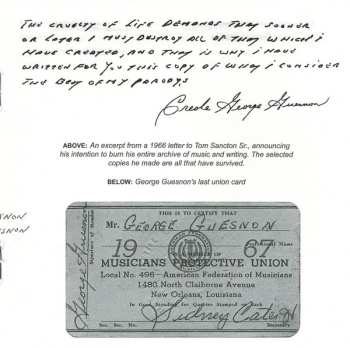 THE CRUELTY OF LIFE DEMANDS THAT SOONER
OR LATER I MUST DESTROY ALL OF THAT WHICH I
HAVE CREATED, AND THAT IS WHY I HAVE
WRITTEN FOR YOU THIS COPY OF WHAT I CONSIDER
THE BEST OF MY PARODYS
Creole George Guesnon
ABOVE: An excerpt from a 1966 letter to Tom Sancton Sr., announcing
his intention to burn his entire archive of music and writing. The selected
copies he made are all that have survived.
BELOW: George Guesnon's last union card
THIS IS TO CERTIFY THAT
Mr. GEORGE GUESNON
19 67
MUSICIANS PROTECTIVE UNION
Local No. 496—American Federation of Musicians
1480 North Claiborne Avenue
New Orleans, Louisiana
In Good Standing for Quarter Stamped on Back
Soc. Sec. No.
Secretary
George Guesnon